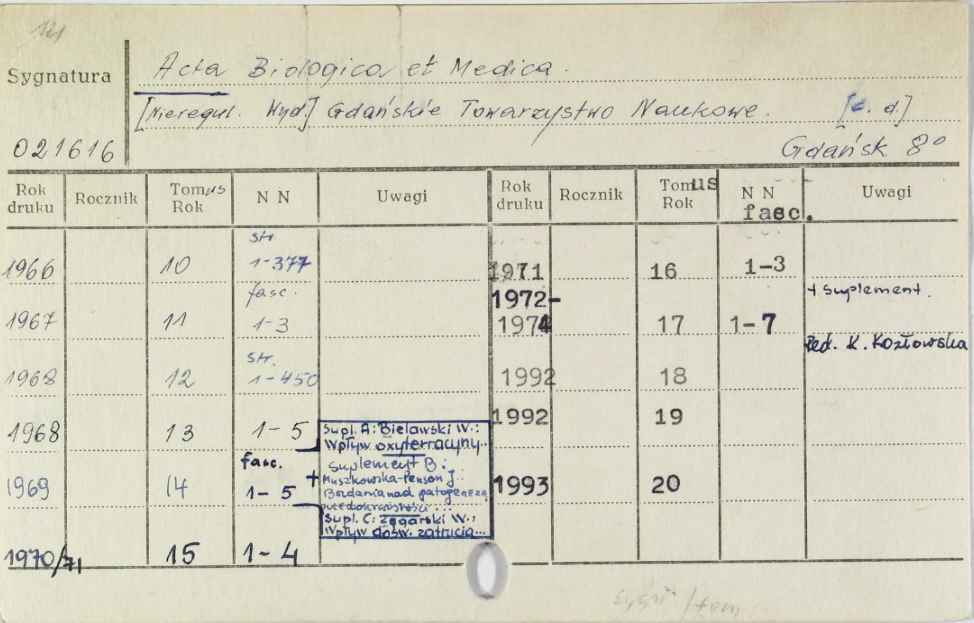 121
Sygnatura
Acta Biologica et Medica.
[Nieregul. Wyd.] Gdańskie Towarzystwo Naukowe. [c. d]
021616
Gdańsk 8°
Rok druku Rocznik Tomus Rok N N Uwagi Rok druku Rocznik Tomus Rok N N fasc. Uwagi
1966 10 str 1-377
1967 11 fasc. 1-3
1968 12 str. 1-450
1968 13 1-5
1969 14 fasc. 1-5
+
Supl. A: Bielawski W.:
Wpływ oxyterracyny..
Suplement B:
Muszkowska-Penson J.:
Badania nad patogenezą
niedokrwistości...
Supl. C: Zegarski W.:
Wpływ dośw. zatrucia...
1970/71 15 1-4
1971 16 1-3
1972-1974 17 1-7 + Suplement.
Red. K. Kozłowska
1992 18
1992 19
1993 20